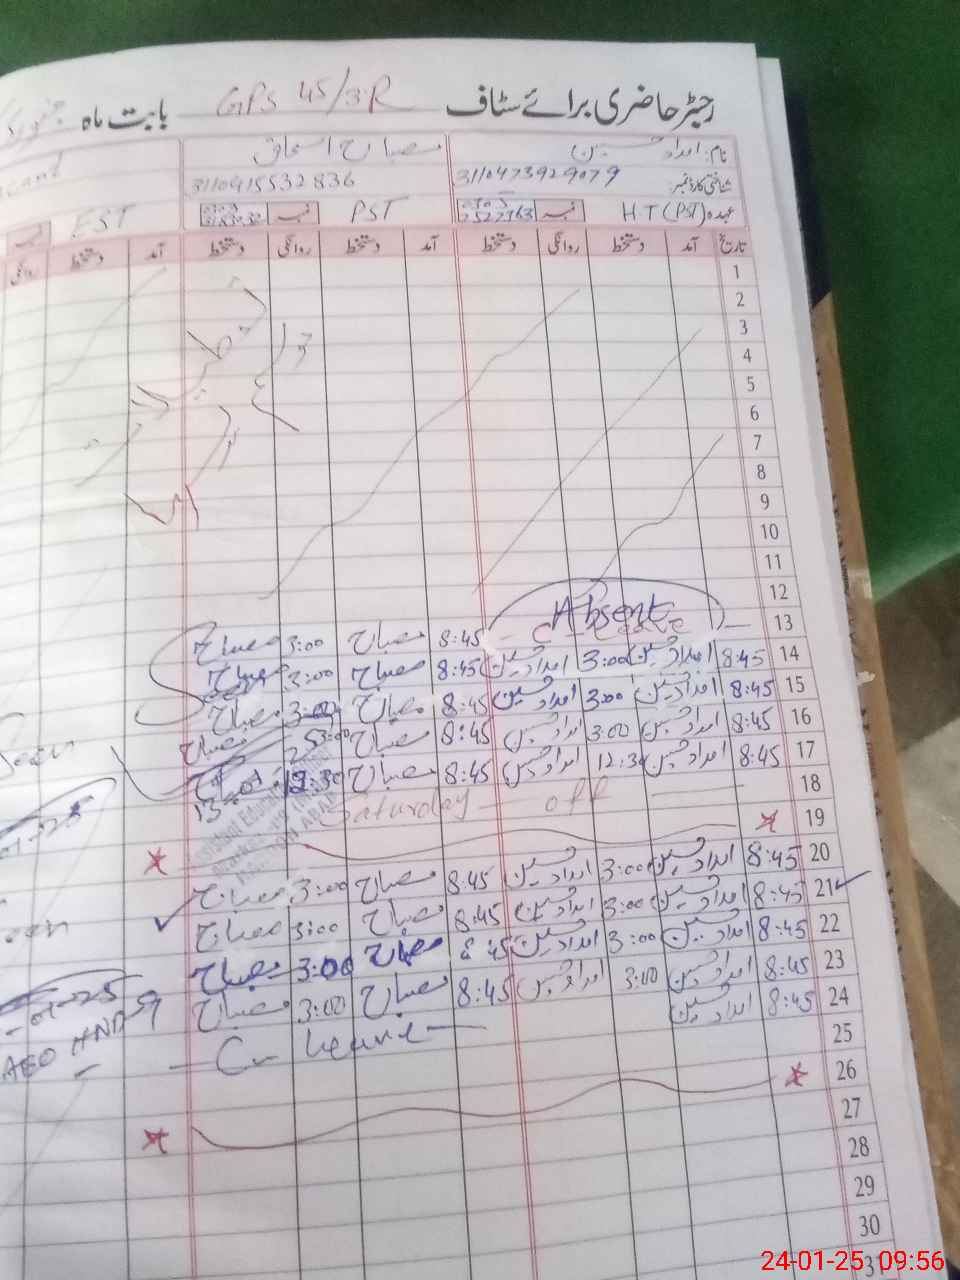 رجسٹر حاضری برائے سٹاف GPS 45/3R بابت ماہ جنوری
نام: امداد حسین مصباح اسحاق
شناختی کارڈ نمبر: 3110473929079 3110415532836
عہدہ H.T (PST) نمبر PST نمبر EST
تاریخ آمد دستخط روانگی دستخط آمد دستخط روانگی دستخط آمد دستخط روانگی
1
2
3
4
5
6
7
8
9
10
11
12
13 Absent 8:45 مصباح 3:00 مصباح
14 8:45 امداد حسین 3:00 امداد حسین 8:45 مصباح 3:00 مصباح
15 8:45 امداد حسین 3:00 امداد حسین 8:45 مصباح 3:00 مصباح
16 8:45 امداد حسین 3:00 امداد حسین 8:45 مصباح 3:00 مصباح
17 8:45 امداد حسین 12:30 امداد حسین 8:45 مصباح 12:30
18 Saturday off
19
20 8:45 امداد حسین 3:00 امداد حسین 8:45 مصباح 3:00 مصباح
21 8:45 امداد حسین 3:00 امداد حسین 8:45 مصباح 3:00 مصباح
22 8:45 امداد حسین 3:00 امداد حسین 8:45 مصباح 3:00 مصباح
23 8:45 امداد حسین 3:00 امداد حسین 8:45 مصباح 3:00 مصباح
24 8:45 امداد حسین C. leave
25
26
27
28
29
30
31
Seen
AEO
24-01-25 09:56